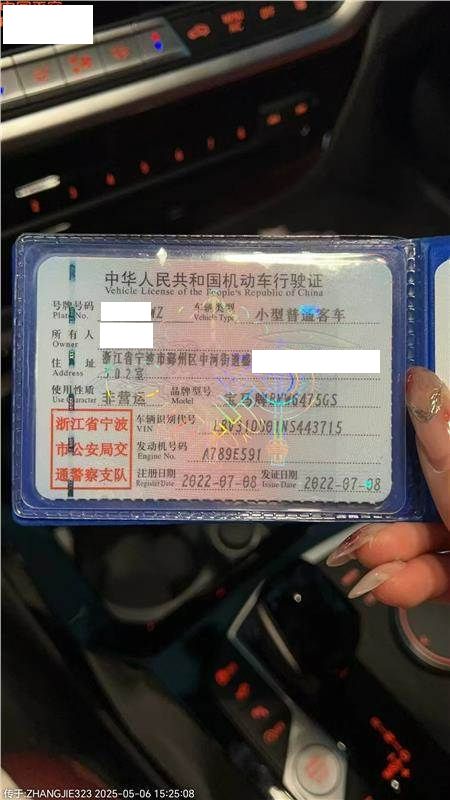 MENU
中华人民共和国机动车行驶证
Vehicle License of the People's Republic of China
号牌号码 车辆类型 小型普通客车
Plate No. Vehicle Type
所有人
Owner
住址 浙江省宁波市鄞州区中河街道盛
Address 502室
使用性质 非营运 品牌型号 宝马牌BMW6475GS
Use Character Model
浙江省宁波市公安局交通警察支队
车辆识别代号
VIN
发动机号码 A789E591
Engine No.
注册日期 2022-07-08 发证日期 2022-07-08
Register Date Issue Date
传于:ZHANGJIE323 2025-05-06 15:25:08